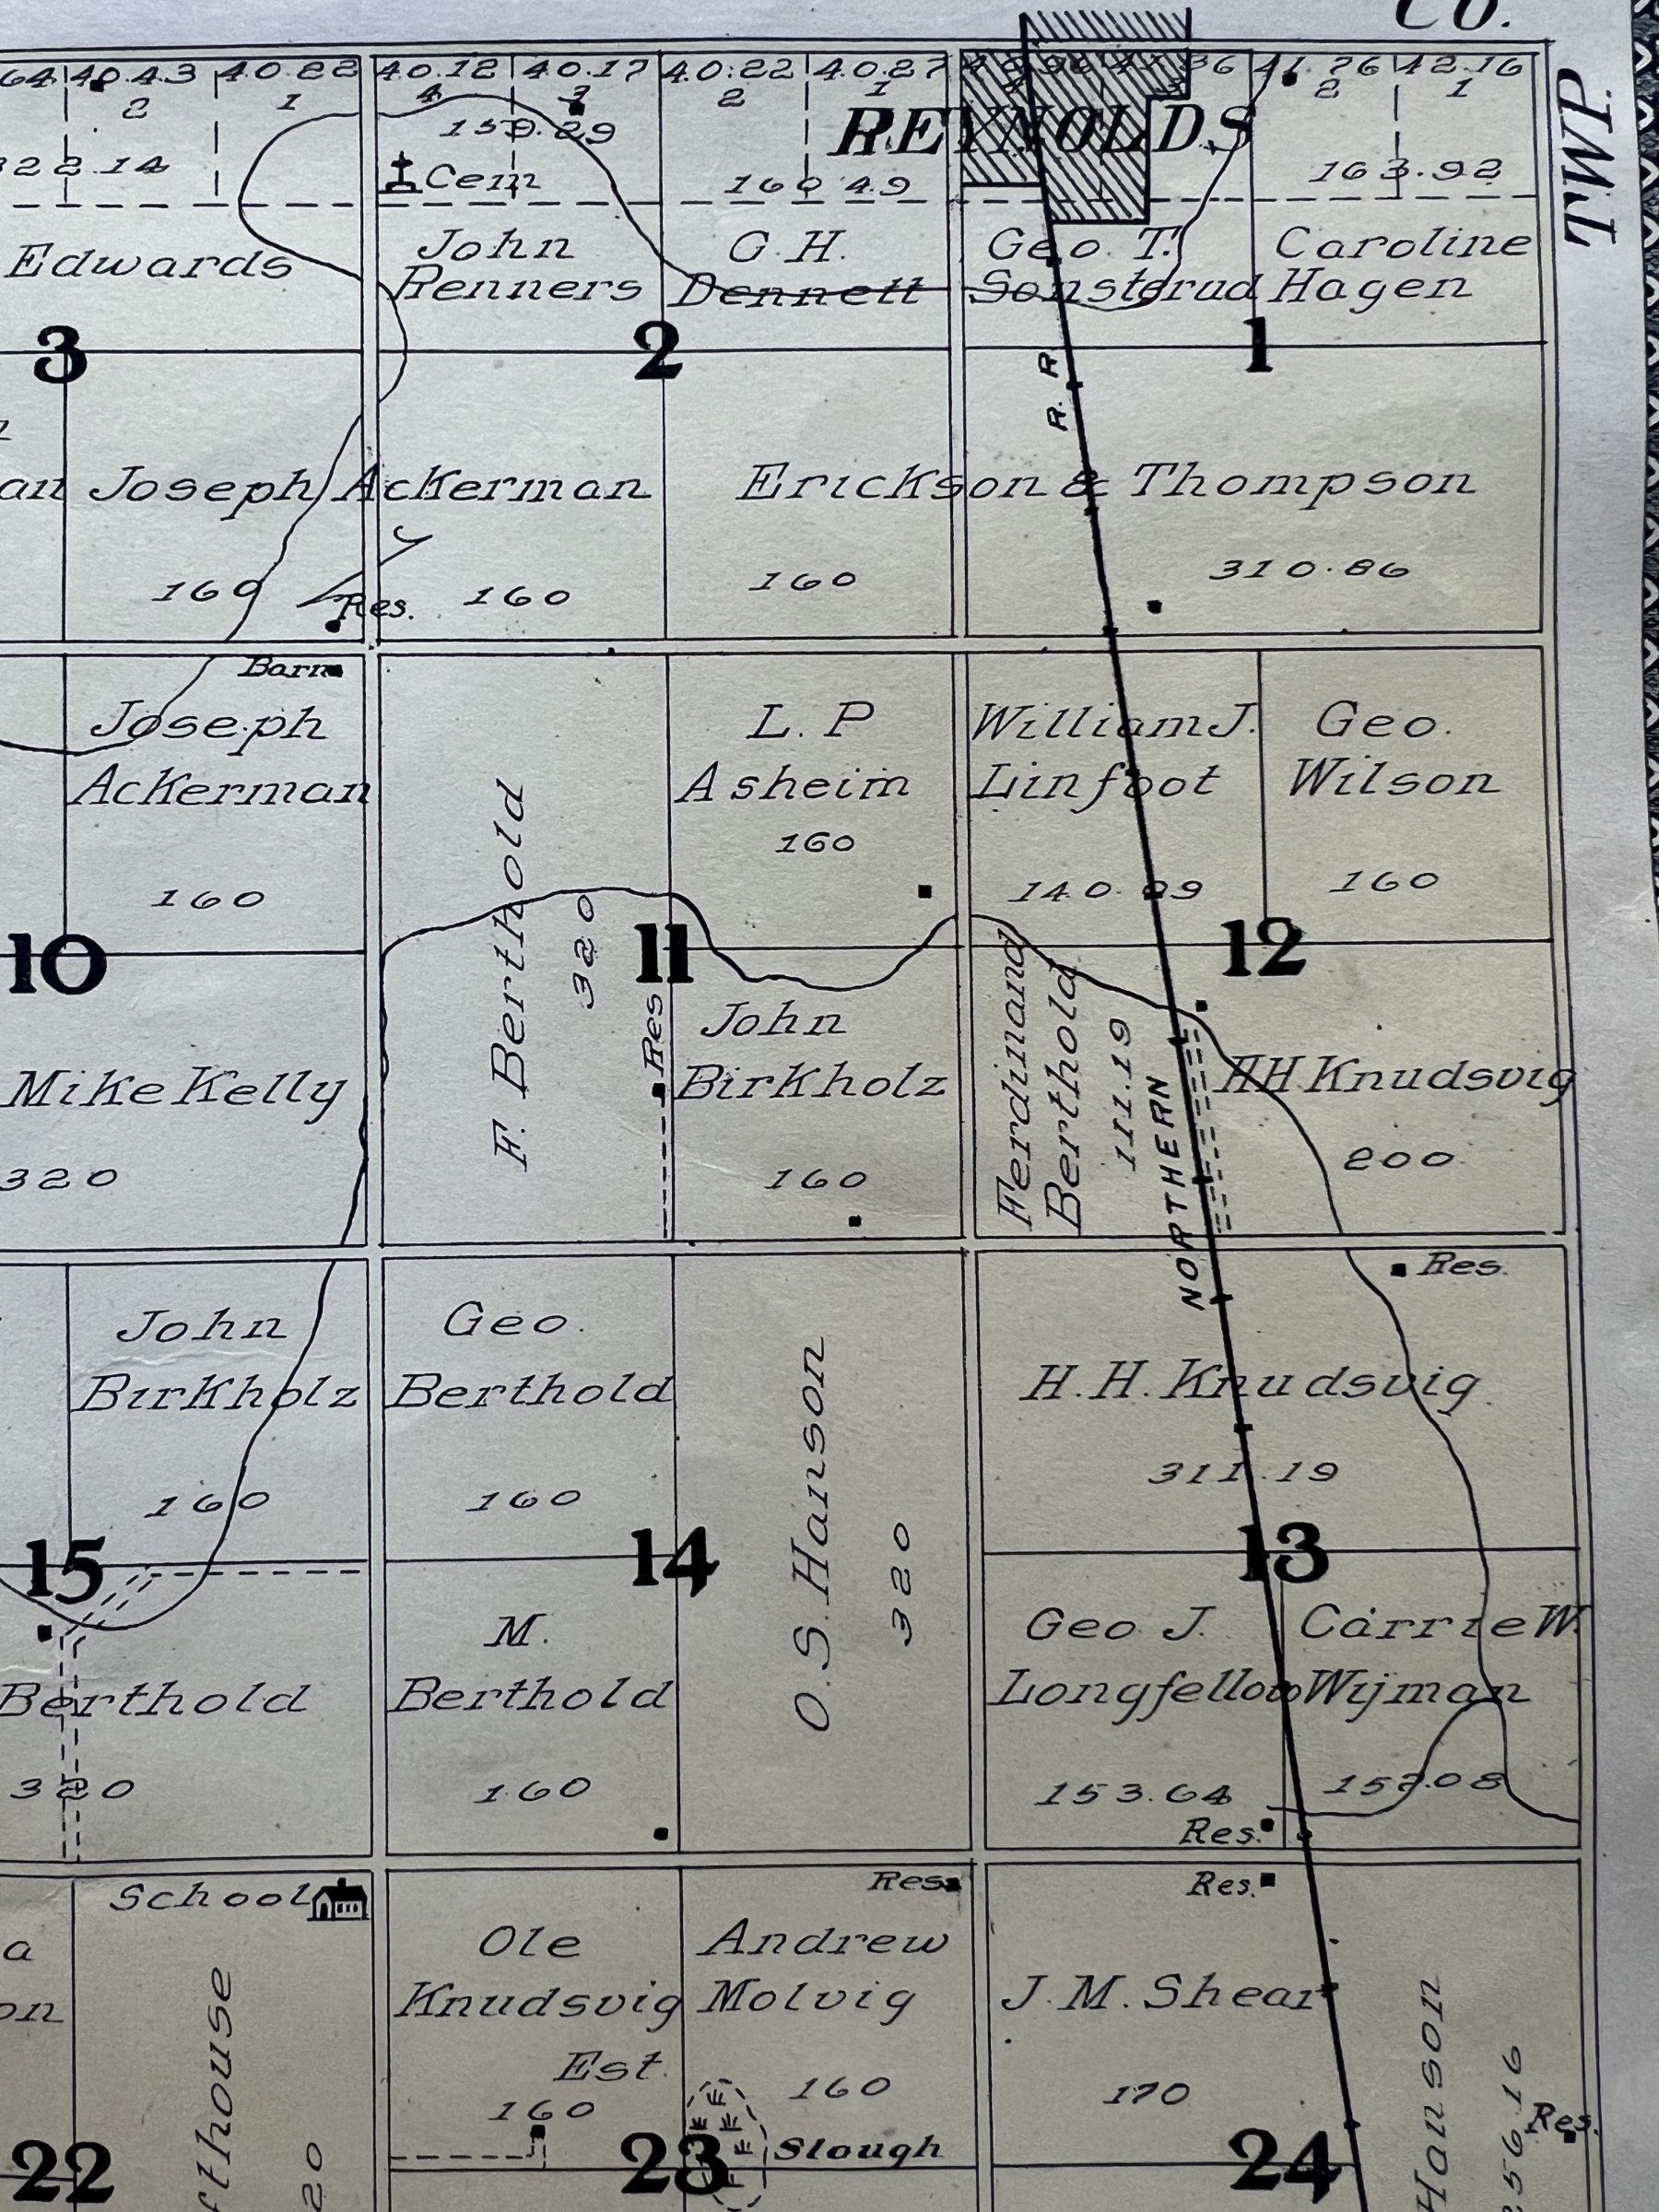 CO.
TWP.
64 40.43 40.22 40.12 40.17 40.22 40.27 36 41.76 42.16
2 1 4 3 2 1 3 2 1
159.29
REYNOLDS
322.14
Cem
160.49
163.92
Edwards
John
Renners
G. H.
Dennett
Geo. T.
Sonsterud
Caroline
Hagen
3 2 1
R. R.
an Joseph Ackerman
Erickson & Thompson
160
Res.
160
160
310.86
Barn
Joseph
Ackerman
160
F. Berthold
320
L. P
Asheim
160
William J.
Linfoot
140.09
Geo.
Wilson
160
10 11 12
Mike Kelly
320
Res
John
Birkholz
160
Ferdinand
Berthold
111.19
NORTHERN
HH Knudsvig
200
John
Birkholz
160
Geo.
Berthold
160
O. S. Hanson
320
Res.
H. H. Knudsvig
311.19
15 14 13
Berthold
320
M.
Berthold
160
Geo J.
Longfellow
153.64
Res.
Carrie W.
Wijman
School
a
on
fthouse
20
Ole
Knudsvig
Est.
160
Res.
Andrew
Molvig
160
Slough
Res.
J. M. Shear
170
Hanson
256.16
Res.
22 23 24